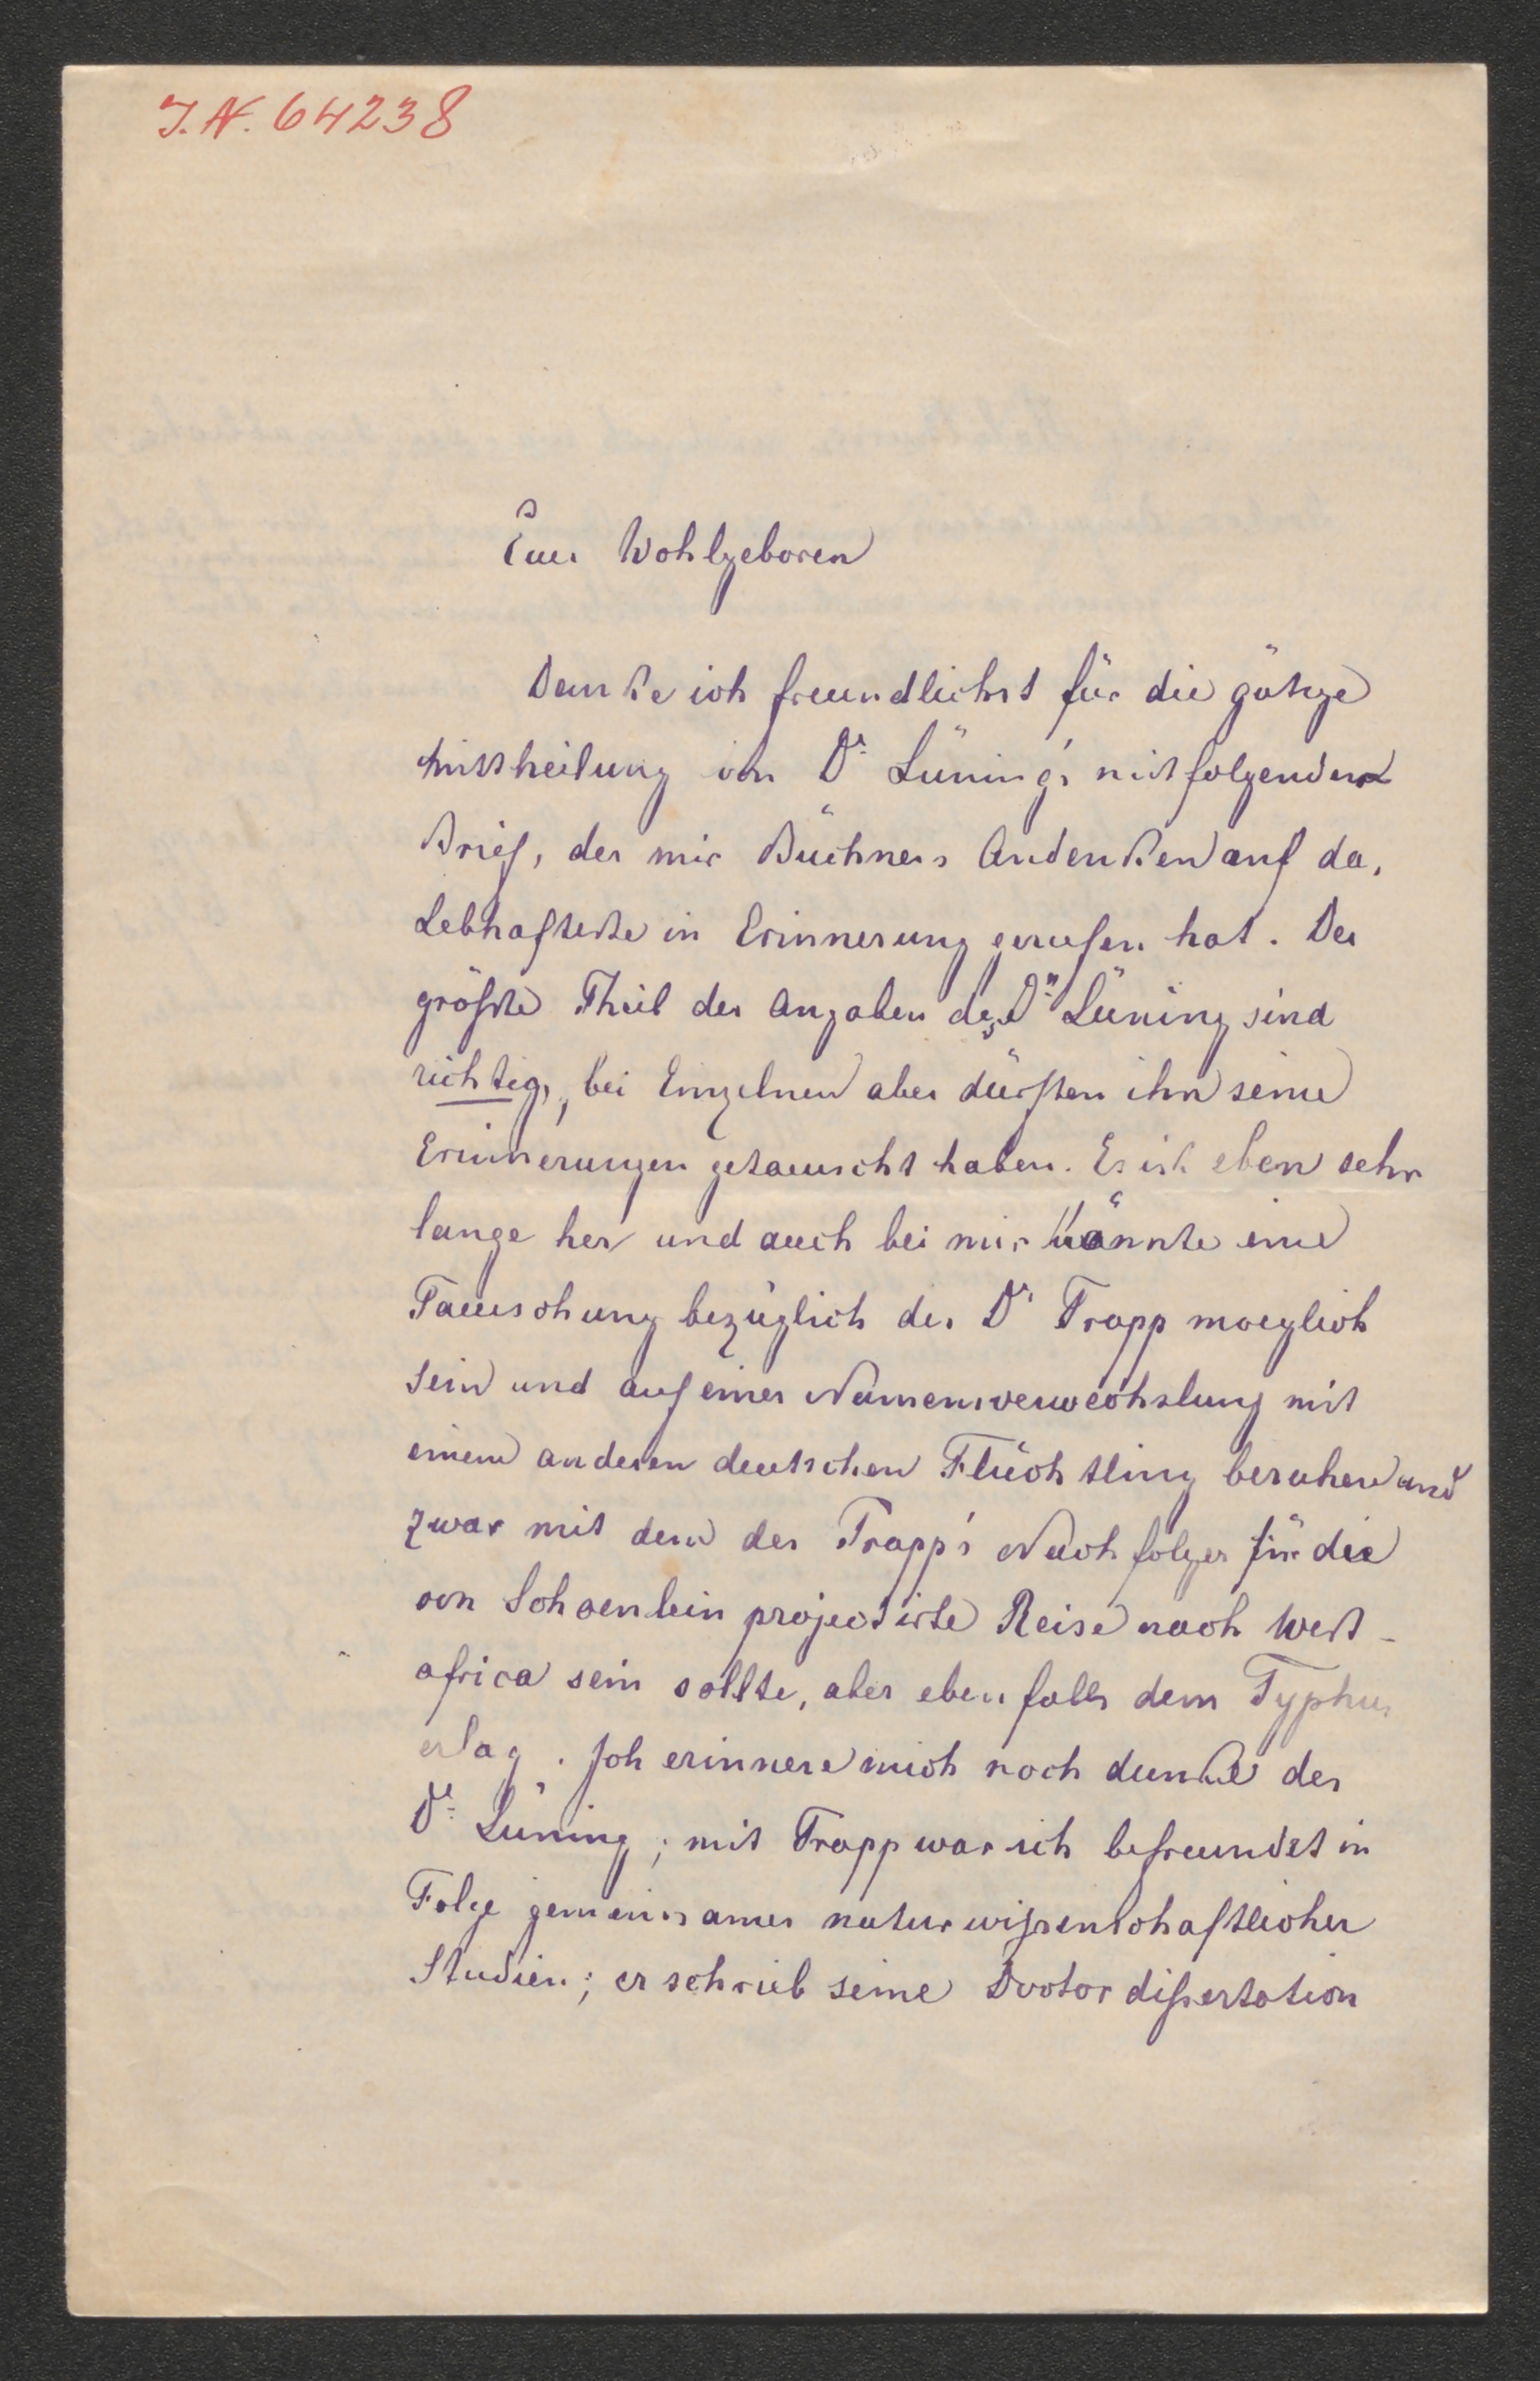 J. N. 64238
Euer Wohlgeboren
Danke ich freundlichst für die gütige
Mittheilung von Dr. Lüning's mitfolgenden
Brief, der mir Büchners Andenken auf das
Lebhafteste in Erinnerung gerufen hat. Der
größte Theil der Angaben des Drn Lüning sind
richtig, bei Einzelnen aber dürften ihn seine
Erinnerungen getaeuscht haben. Es ist eben sehr
lange her und auch bei mir könnte eine
Taeuschung bezüglich des Dr Trapp moeglich
sein und auf einer Namensverwechslung mit
einem anderen deutschen Flüchtling beruhen und
zwar mit dem der Trapp's Nachfolger für die
von Schoenlein projectirte Reise nach West-
africa sein sollte, aber ebenfalls dem Typhus
erlag. Ich erinnere mich noch dunkel des
Dr. Lüning; mit Trapp war ich befreundet in
Folge gemeinsamer naturwißenschaftlicher
Studien; er schrieb seine Doctordißertation